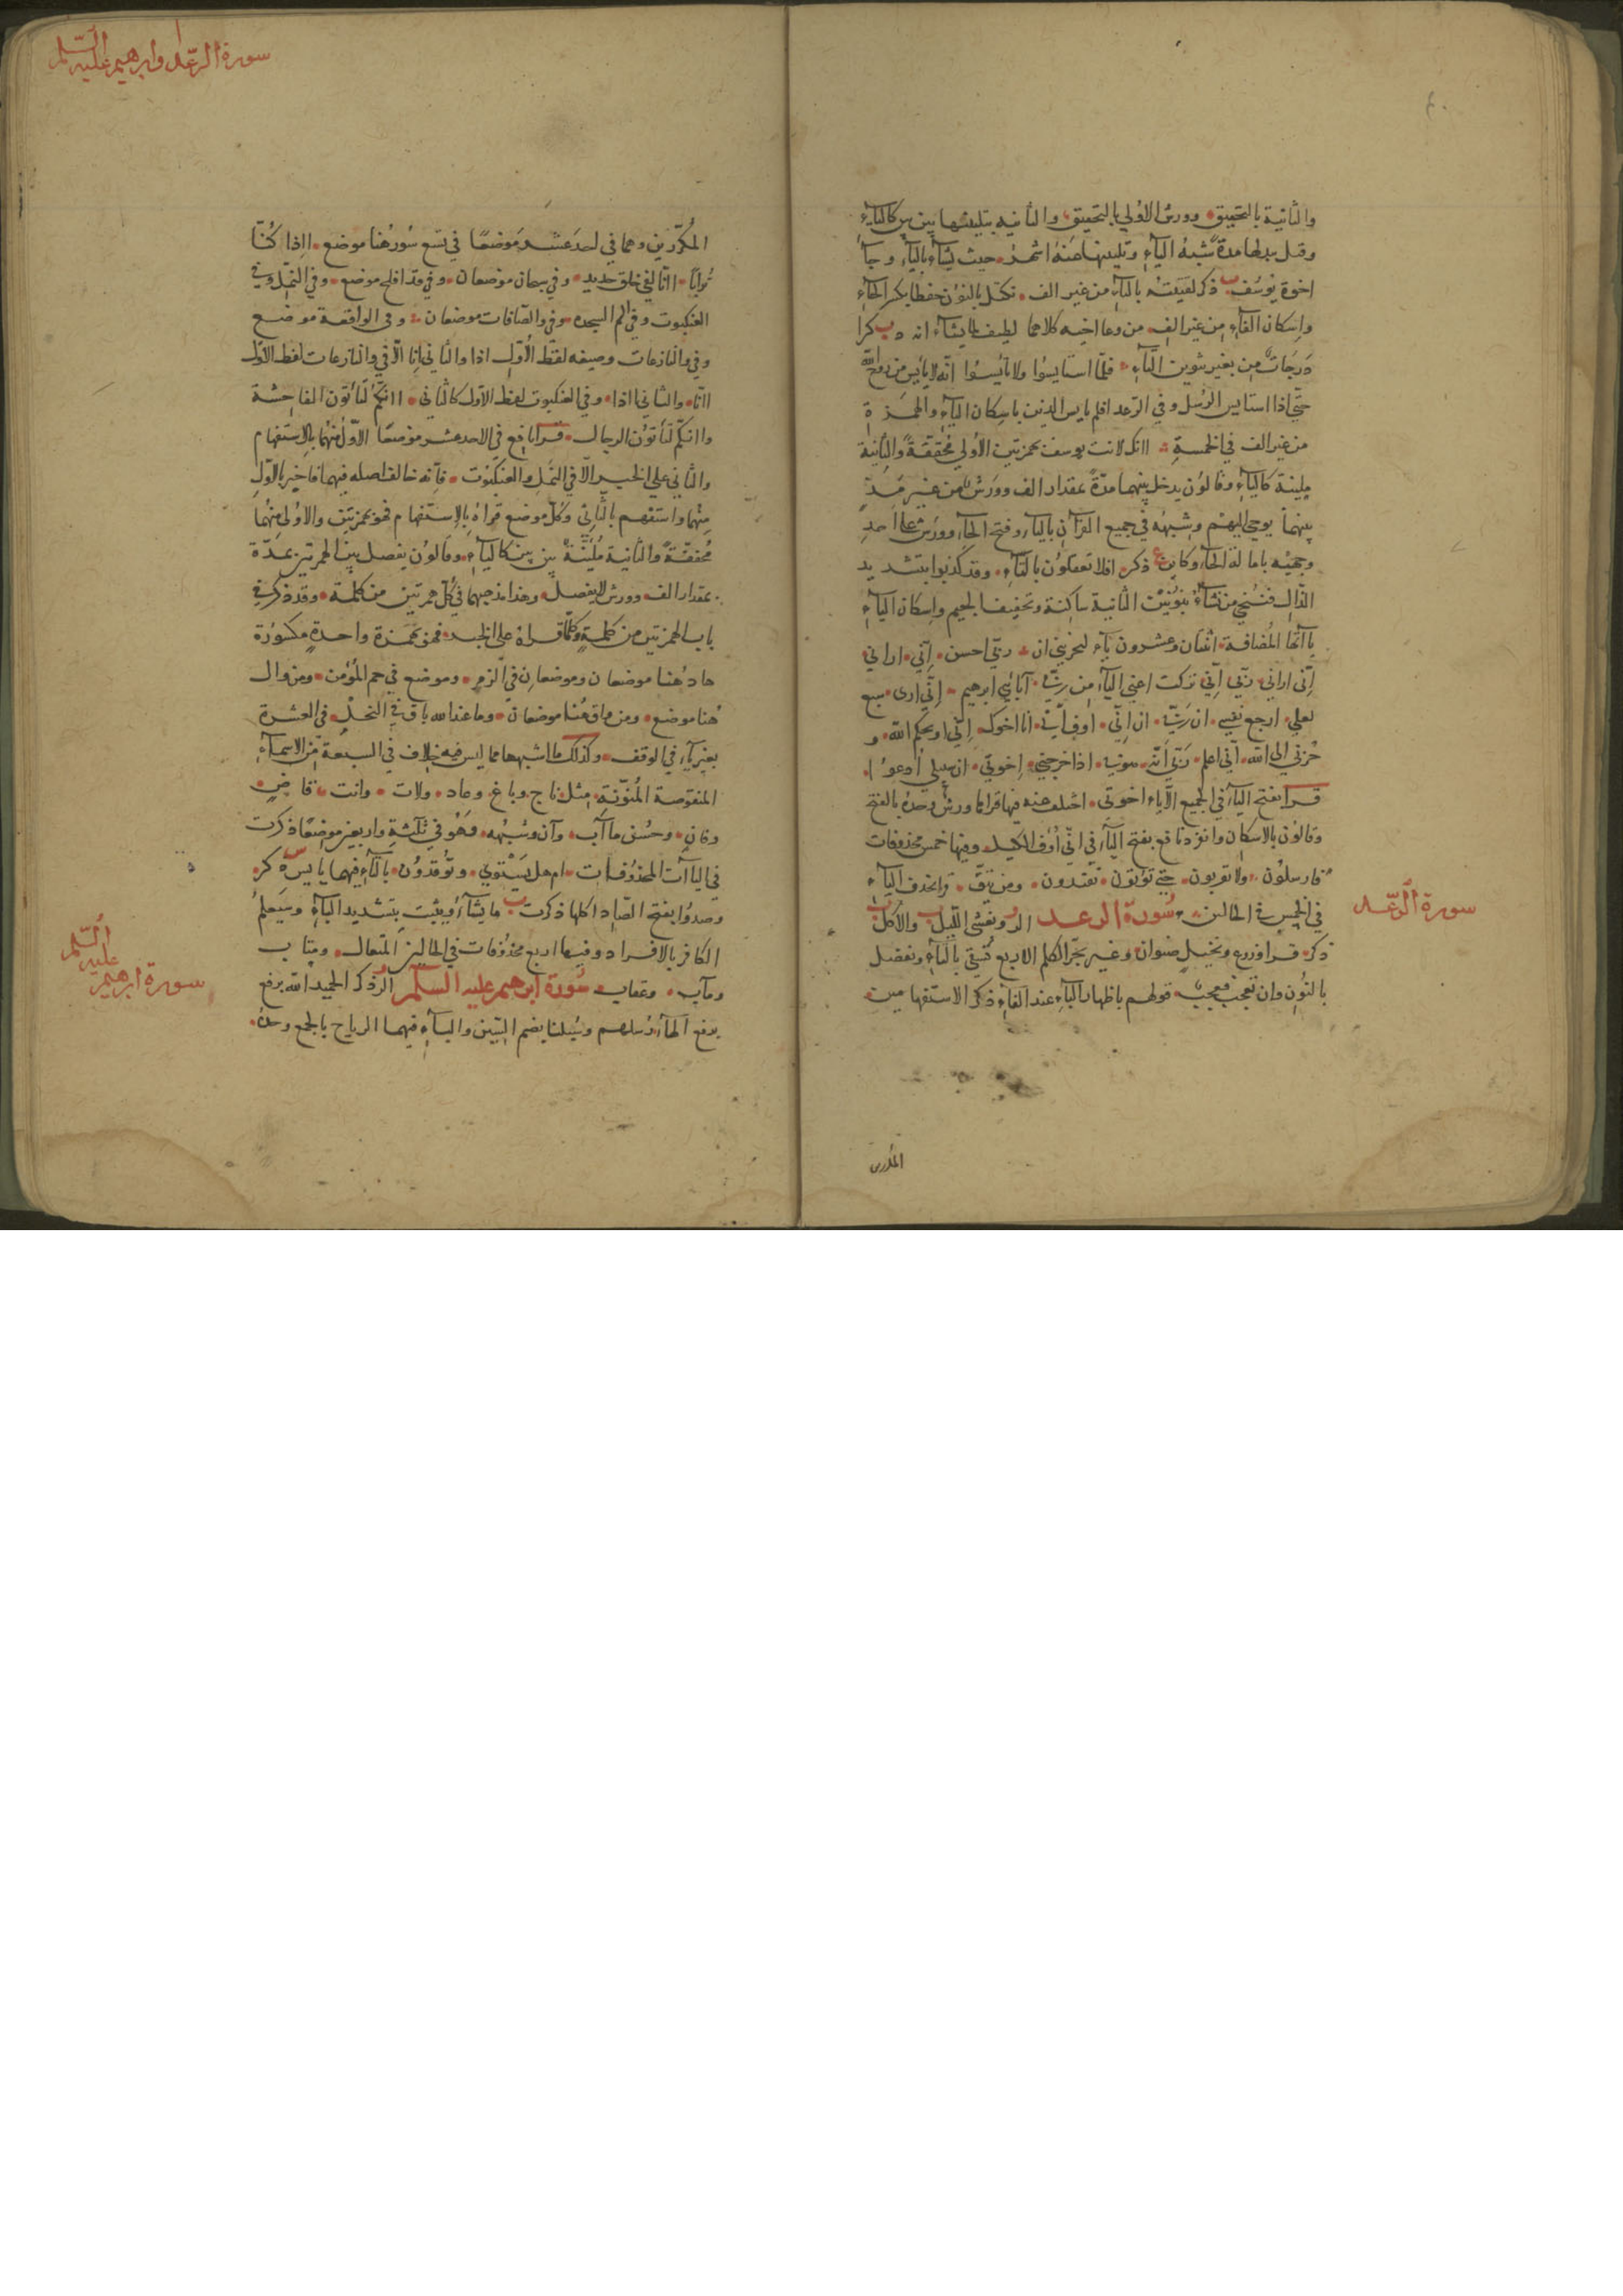 والثانية بالتحقيق وورش الاولي بالتحقيق والثانيه بتليينها بين بين كاليآء
وقيل يبدلها مدة شبه اليآء وتليينها عنه اشهر حيث يشآء باليآء وجآ
اخوة يوسف ذكر لفتيته بالتآء من غير الف نكتل بالنون حفظا بكسر الحآء
واسكان الفآء من غير الف من وعا اخيه كلاهما لطيف لما يشآء انه ذكرا
درجات من بغير تنوين التآء فلما استايسوا ولا تايسوا انه لا يايس من روح الله
حتي اذا استايس الرسل وفي الرعد افلم يايس الذين باسكان اليآء والهمزة
من غير الف في الخمسة اانك لانت يوسف بهمزتين الاولي محققة والثانية
ملينة كاليآء وقالون يدخل بينهما مدة بمقدار الف وورش من غير مد
بينهما يوحي اليهم وشبهه في جميع القرآن باليآء وفتح الحآء وورش علي احد
وجهيه بامالة الحآء وكاين ذكر افلا تعقلون بالتآء وقد كذبوا بتشديد
الذال فننجي من نشآء بنونين الثانية ساكنة وتخفيف الجيم واسكان اليآء
ياآتها المضافة اثنتان وعشرون يآء ليحزنني ان ربي احسن اني اراني
اني اراني ربي اني تركت اعني اليآء من ربي آبائي ابرهيم اني اري سبع
لعلي ارجع نفسي ان ربي ان اني اوف اني انا اخوك ابي او يحكم الله و
حزني الي الله اني اعلم ربي انه سوف اذ اخرجني اخوتي ان سبيلي ادعوا
قرا بفتح اليآء في الجميع الا يآء اخوتي اختلف عنه فيها قراها ورش وحده بالفتح
وقالون بالاسكان وانفرد نافع بفتح اليآء في اني اوف الكيل وفيها خمس محذوفات
فارسلون ولا تقربون حتي تؤتون تفندون ومن يتق قرا بحذف اليآء
في الخمس في الحالين سورة الرعد الر ويغشي الليل والاكل
ذكر قرا وزرع ونخيل صنوان وغير بجر الكلم الاربع تسقي بالتآء ونفضل
بالنون وان تعجب فعجب قولهم باظهار البآء عند الفآء ذكر الاستفهامين
سورة الرعد
المكررين
سورة الرعد وابرهيم عليه السلم
المكررين وهما في احد عشر موضعا في تسع سور هنا موضع ااذا كنا
ترابا اانا لفي خلق جديد وفي سبحان موضعان وفي قد افلح موضع وفي النمل وفي
العنكبوت وفي الم السجده وفي والصآفات موضعان وفي الواقعة موضع
وفي والنازعات وصيغه لفظ الاول ااذا والثاني اانا الا في والنازعات لفظ الاول
اانا والثاني ااذا وفي العنكبوت لفظ الاول كالثاني اانكم لتاتون الفاحشة
واانكم لتاتون الرجال قرا نافع في الاحد عشر موضعا الاول منهما بالاستفهام
والثاني علي الخبر الا في النمل والعنكبوت فانه خالف اصله فيهما فاخبر بالاول
منهما واستفهم بالثاني وكل موضع قراه بالاستفهام فهو بهمزتين والاولي منهما
محققة والثانية ملينة بين بين كاليآء وقالون يفصل بين الهمزتين بمدة
بمقدار الف وورش لا يفصل وهذا مذهبهما في كل همزتين من كلمة وقد ذكر في
باب الهمزتين من كلمة وكلما قراه علي الخبر فهو بهمزة واحدة مكسورة
هاد هنا موضعان وموضعان في الزمر وموضع في حم المؤمن ومن وال
هنا موضع ومن واق هنا موضعان وما عند الله باق في النحل في العشرة
بغير يآء في الوقف وكذلك ما اشبهها مما ليس فيه خلاف في السبعة من الاسمآء
المنقوصة المنونة مثل ناج وباغ وعاد ولات وانت قاض
وفان وحسن مآب وآن وشبهه فهو في ثلثة واربعين موضعا ذكرت
في اليآت المحذوفات ام هل يستوي وتوقدون بالتآء فيهما يايس ذكر
وصدوا بفتح الصاد اكلها ذكرت ما يشآء ويثبت بتشديد البآء وسيعلم
الكافر بالافراد وفيها اربع محذوفات في الحالين المتعال ومتاب
ومآب وعقاب سورة ابرهيم عليه السلم الر ذكر الحميد الله برفع
برفع الهآء رسلهم وسبلنا بضم السين والبآء فيهما الرياح بالجمع وحده
سورة ابرهيم عليه السلم